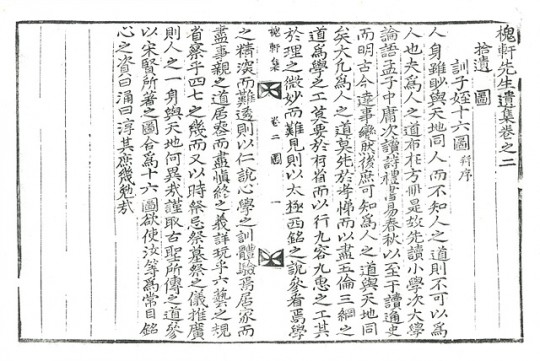 槐軒先生遺集卷之二
拾遺 圖
訓子姪十六圖 幷序
人身雖眇與天地同人而不知人之道則不可以為
人也夫為人之道布在方冊是故先讀小學次大學
論語孟子中庸次讀詩禮書易春秋以至于讀通史
而明古今達事變然後庶可知為人之道與天地同
矣大凡為人之道莫先於孝悌而以盡五倫三綱之
道為學之工莫要於省而以行九容九思之工其
於理之微妙而難見則以太極西銘之說參看焉學
槐軒集 卷二 圖 一
之精深而難透則以仁說心學之訓體驗焉居家而
盡事親之道居喪而盡愼終之義詳玩乎六藝之規
省察乎四七之幾而又以時祭忌祭墓祭之儀推廣
則人之一身與天地何異哉謹取古聖所傳之道參
以宋賢所著之圖合為十六圖欲使汝等為常目銘
心之資曰涌曰淳其庶幾勉哉